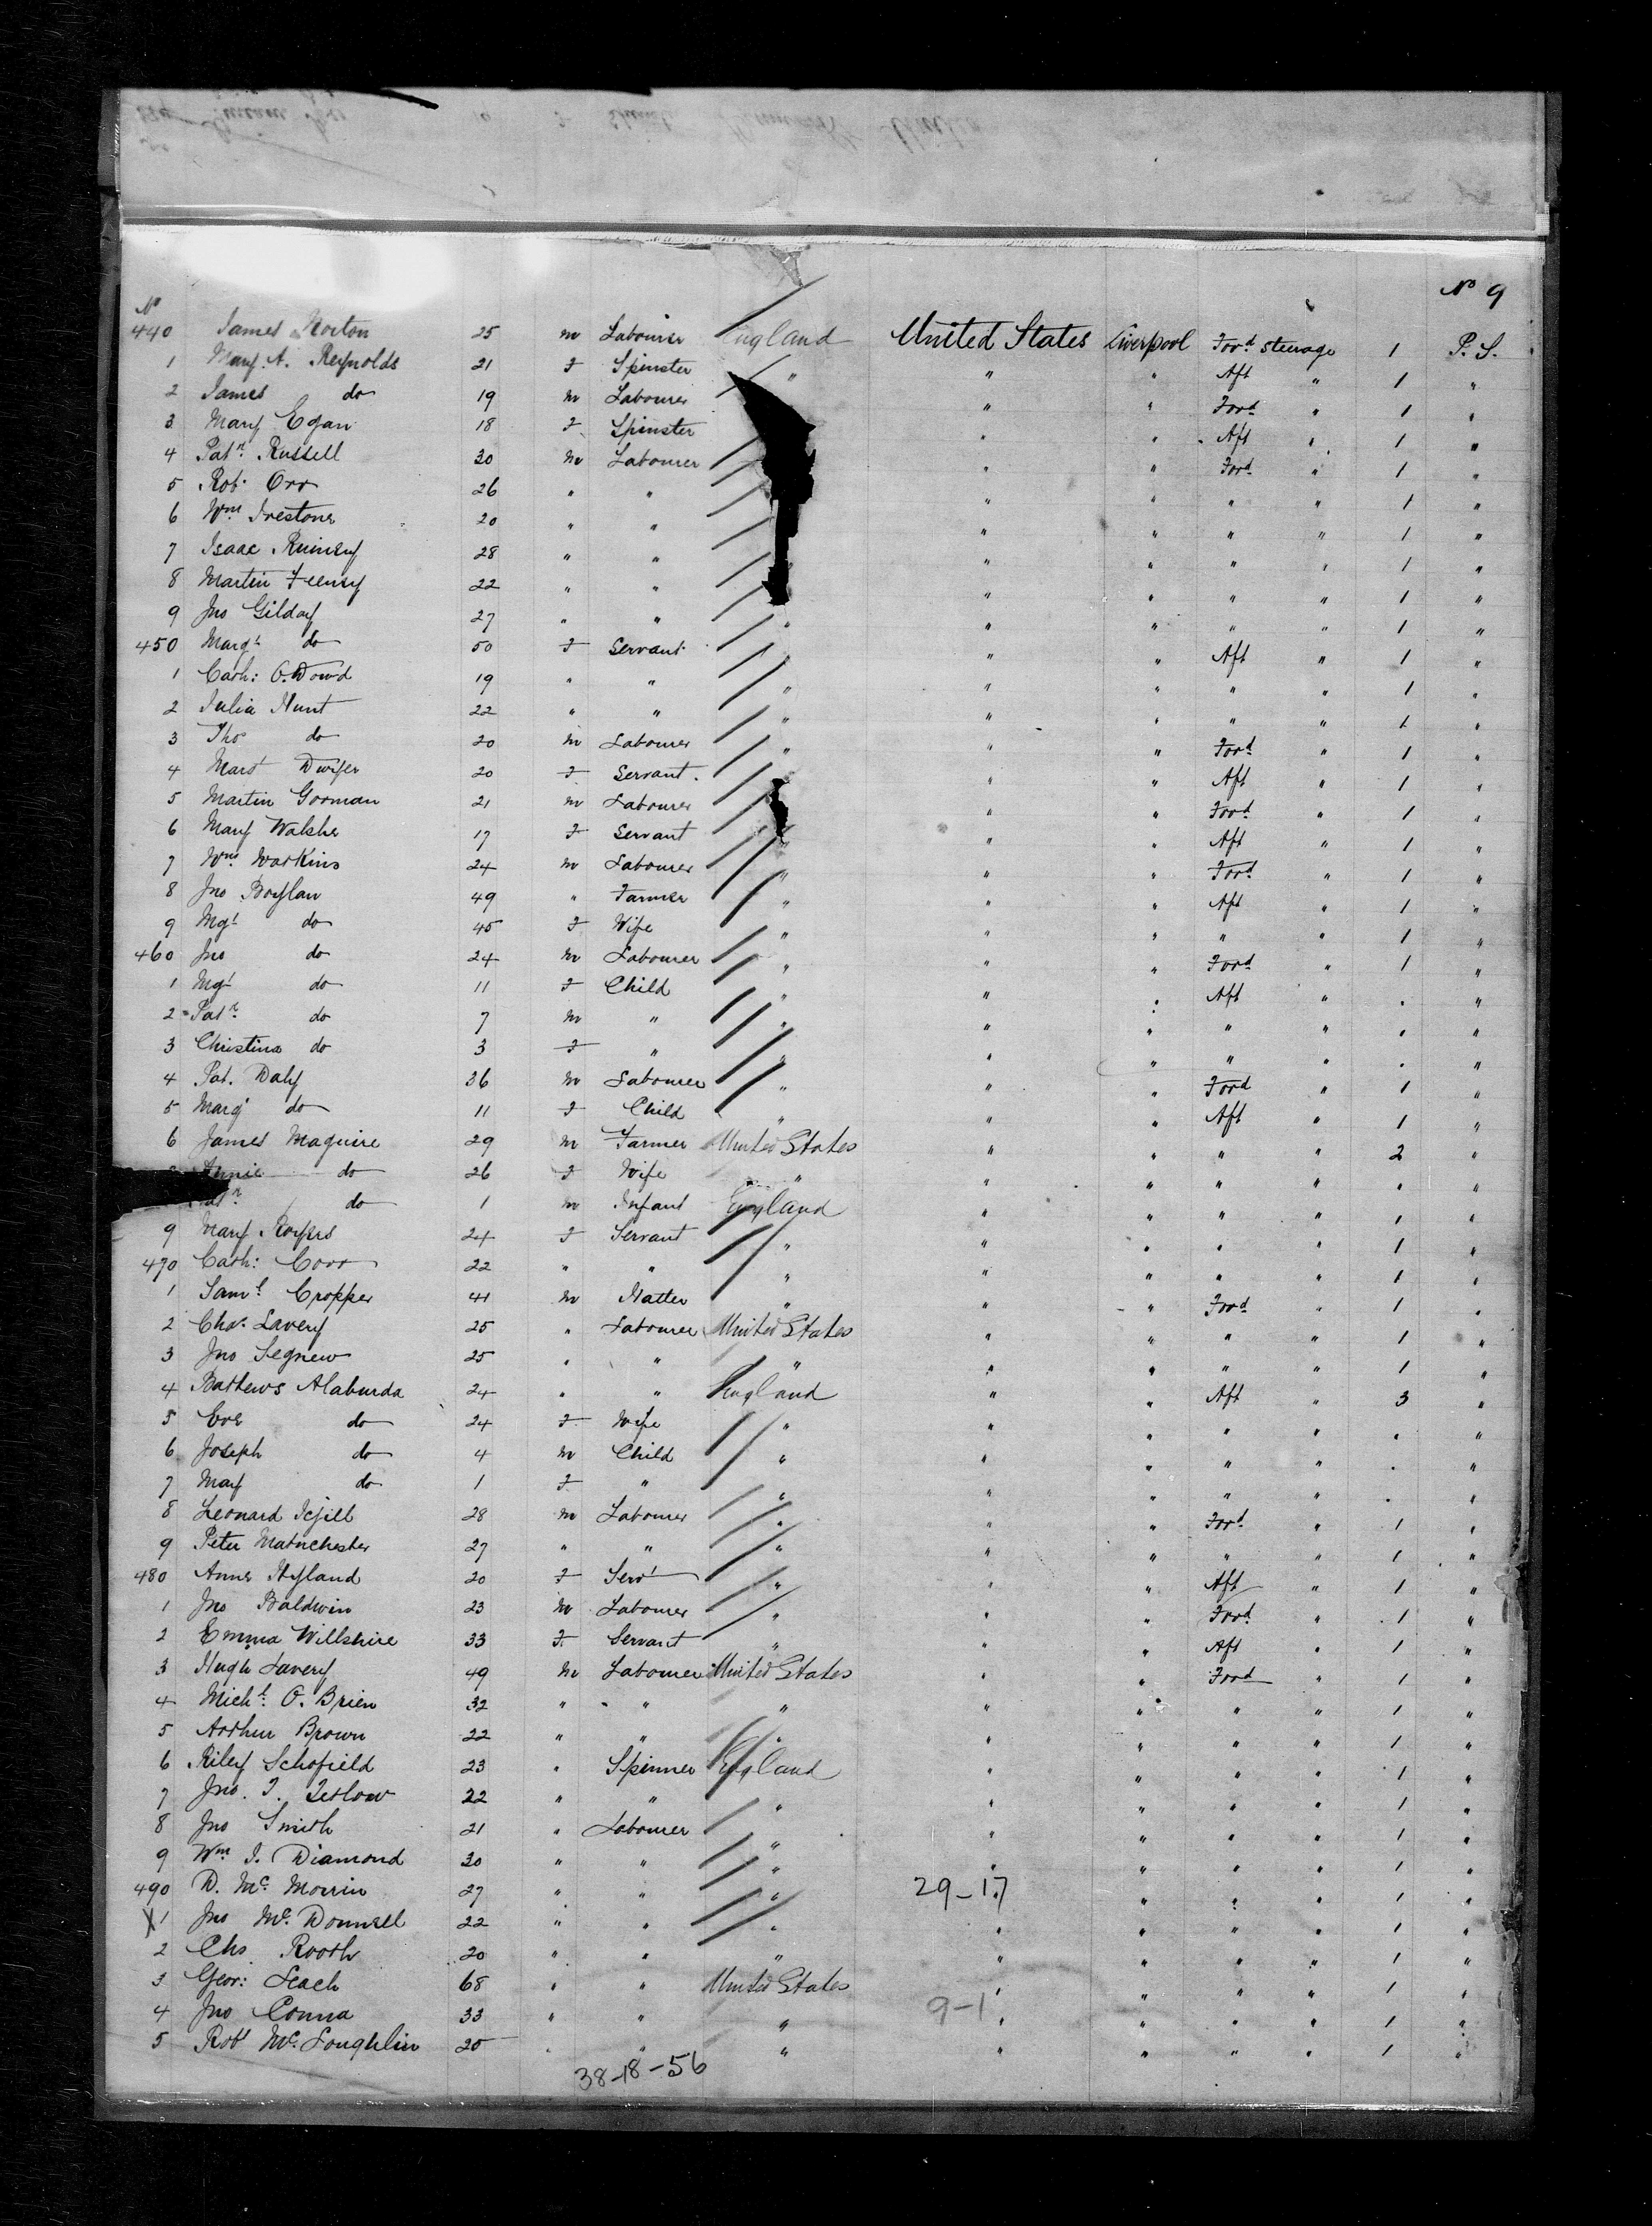 No 9
No
440 James Morton 25 m Labourer England United States Liverpool Ford steerage 1 P. S.
1 Mary A. Reynolds 21 F Spinster " " " Aft " 1 "
2 James do 19 m Labourer " " Ford " 1 "
3 Mary Egan 18 F Spinster " " Aft " 1 "
4 Patk Russell 30 m Labourer " " Ford " 1 "
5 Robt Orr 26 " " " " " " 1 "
6 Wm 20 " " " " " " 1 "
7 Isaac 28 " " " " " " 1 "
8 Martin Feeney 22 " " " " " " 1 "
9 Jno Gilday 27 " " " " " " " 1 "
450 Margt do 50 F Servant " " Aft " 1 "
1 Cath: O.Dowd 19 " " " " " " " 1 "
2 Julia Hunt 22 " " " " " " " 1 "
3 Thos do 20 m Labourer " " " Ford " 1 "
4 Dwyer 20 F Servant. " " Aft " 1 "
5 Martin Gorman 21 m Labourer " " Ford " 1 "
6 Mary Walshe 17 F Servant " " Aft " 1 "
7 Wm Watkins 24 m Labourer " " " Ford " 1 "
8 Jno Boylan 49 " Farmer " " " Aft " 1 "
9 Mgt do 45 F Wife " " " " " 1 "
460 Jno do 24 m Labourer " " " Ford " 1 "
1 Mgt do 11 F Child " " " Aft " "
2 Patk do 7 m " " " " " " " "
3 Christina do 3 F " " " " " " "
4 Pat. Daly 36 m Labourer " " " Ford " 1 "
5 Margt do 11 F Child " " " Aft " 1 "
6 James Maguire 29 m Farmer United States " " " " 2 "
Annie do 26 F Wife " " " " " " "
do 1 m Infant England " " " " "
9 Mary Rogers 24 F Servant " " " " " 1 "
470 Cath: Corr 22 " " " " " " " 1 "
1 Saml Cropper 41 m Hatter " " " Ford " 1 "
2 Chas. Lavery 25 " Labourer United States " " " " 1 "
3 Jno Segnew 25 " " " " " " " 1 "
4 Bathews Alaburda 24 " " England " " Aft " 3 "
5 Eve do 24 F Wife " " " " " " "
6 Joseph do 4 m Child " " " " " "
7 Mary do 1 F " " " " " " "
8 Leonard 28 m Labourer " " " Ford " 1 "
9 Peter Matuchester 27 " " " " " " " 1 "
480 Anne Hyland 20 F Servt " " " Aft " 1 "
1 Jno Baldwin 23 m Labourer " " " Ford " 1 "
2 Emma Willshire 33 F. Servant " " " Aft " 1 "
3 Hugh Lavery 49 m Labourer United States " " Ford " 1 "
4 Michl. O. Brien 32 " " " " " " " 1 "
5 Arthur Brown 22 " " " " " " " 1 "
6 Riley Schofield 23 " Spinner England " " " " 1 "
7 Jno. T. Tetlow 22 " " " " " " " 1 "
8 Jno Smith 21 " Labourer " " " " " 1 "
9 Wm J. Diamond 30 " " " " " " " 1 "
490 D. Mc Morrin 27 " " " 29-17 " " " 1 "
X 1 Jno Mc. Donnell 22 " " " " " " " 1 "
2 Chs Rooth 20 " " " " " " " 1 "
3 Geor: Leach 68 " " United States " " " " 1 "
4 Jno Conna 33 " " " 9-1 " " " " 1 "
5 Robt Mc. Loughlin 25 " " " " " " " 1 "
38-18-56